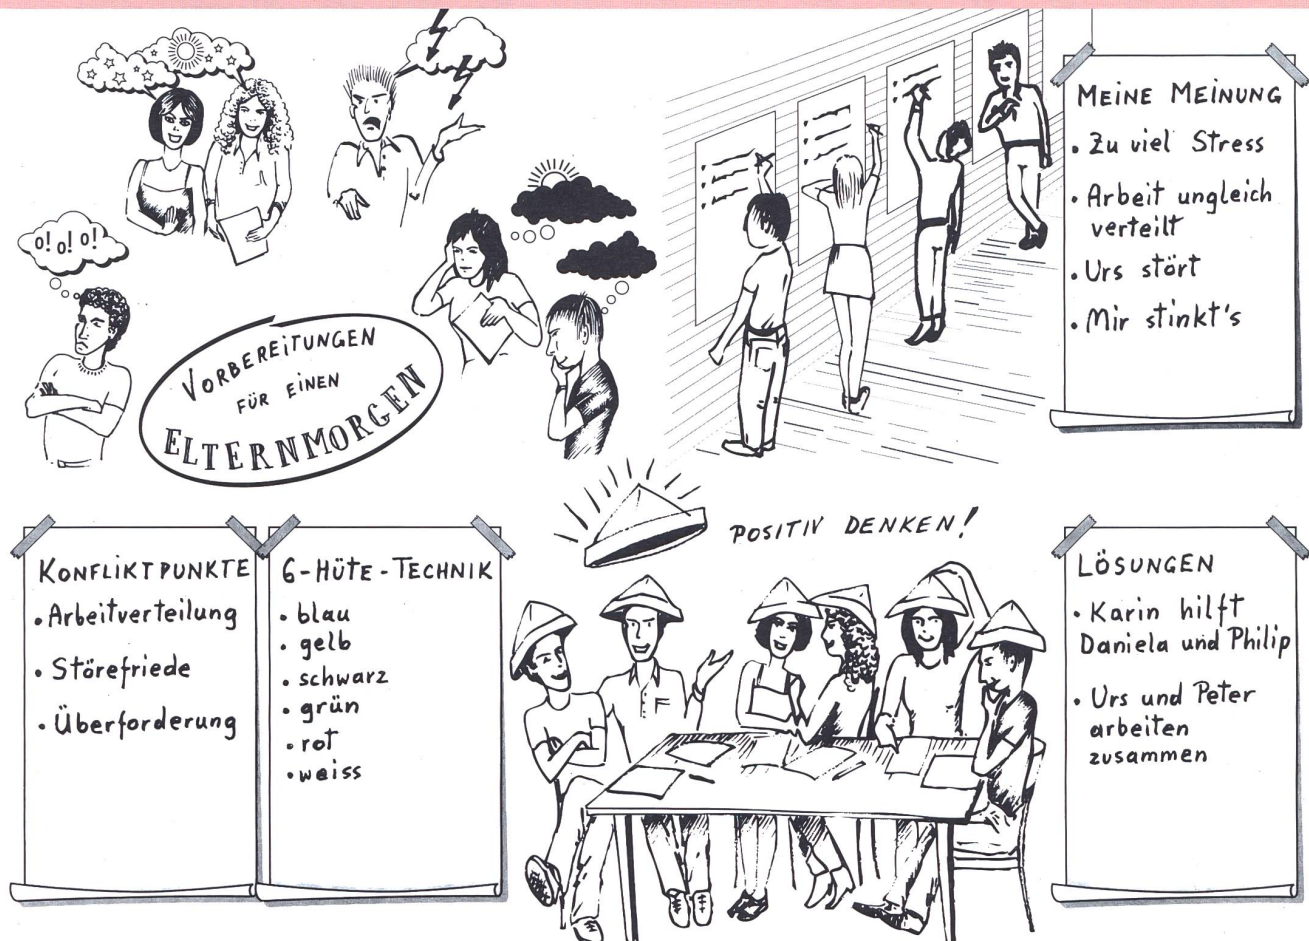 o! o! o!
VORBEREITUNGEN
FÜR EINEN
ELTERNMORGEN
MEINE MEINUNG
• Zu viel Stress
• Arbeit ungleich
verteilt
• Urs stört
• Mir stinkt's
KONFLIKTPUNKTE
• Arbeitverteilung
• Störefriede
• Überforderung
6-HÜTE-TECHNIK
• blau
• gelb
• schwarz
• grün
• rot
• weiss
POSITIV DENKEN!
LÖSUNGEN
• Karin hilft
Daniela und Philip
• Urs und Peter
arbeiten
zusammen